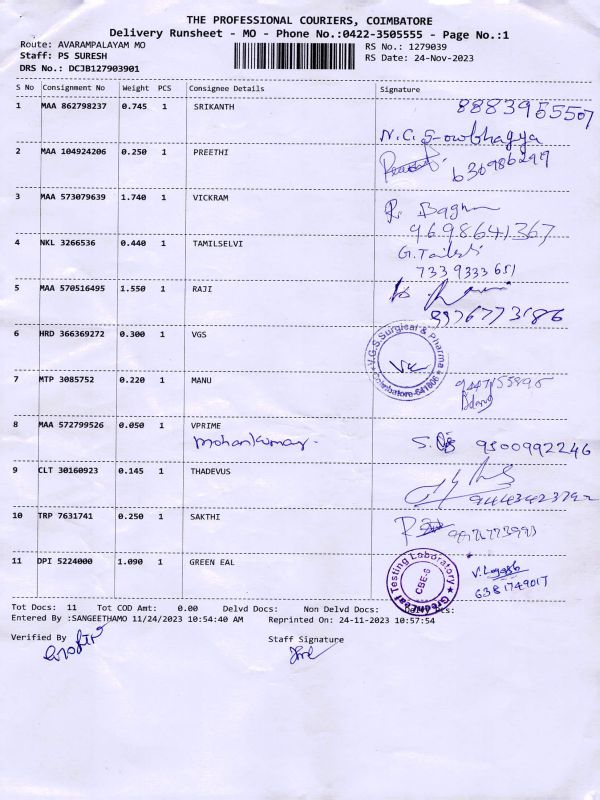 THE PROFESSIONAL COURIERS, COIMBATORE
Delivery Runsheet - MO - Phone No.:0422-3505555 - Page No.:1
Route: AVARAMPALAYAM MO
RS No.: 1279039
Staff: PS SURESH
RS Date: 24-Nov-2023
DRS No.: DCJB127903901
S No Consignment No Weight PCS Consignee Details Signature
1 MAA 862798237 0.745 1 SRIKANTH 8883965507
N.C. Sowbhagya
2 MAA 104924206 0.250 1 PREETHI
3 MAA 573079639 1.740 1 VICKRAM
9698641367
4 NKL 3266536 0.440 1 TAMILSELVI
7339333651
5 MAA 570516495 1.550 1 RAJI
6 HRD 366369272 0.300 1 VGS
V.G.S.Surgical & Pharma
Coimbatore-641006
7 MTP 3085752 0.220 1 MANU
8 MAA 572799526 0.050 1 VPRIME
Mohankumar. 9500992246
9 CLT 30160923 0.145 1 THADEVUS
10 TRP 7631741 0.250 1 SAKTHI
11 DPI 5224000 1.090 1 GREEN EAL
Testing Laboratory
CBE-6
6381749017
Tot Docs: 11 Tot COD Amt: 0.00 Delvd Docs: Non Delvd Docs: Delvy Pts:
Entered By :SANGEETHAMO 11/24/2023 10:54:40 AM Reprinted On: 24-11-2023 10:57:54
Verified By Staff Signature